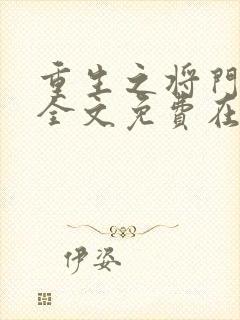 重生之将門
全文免費在
伊姿